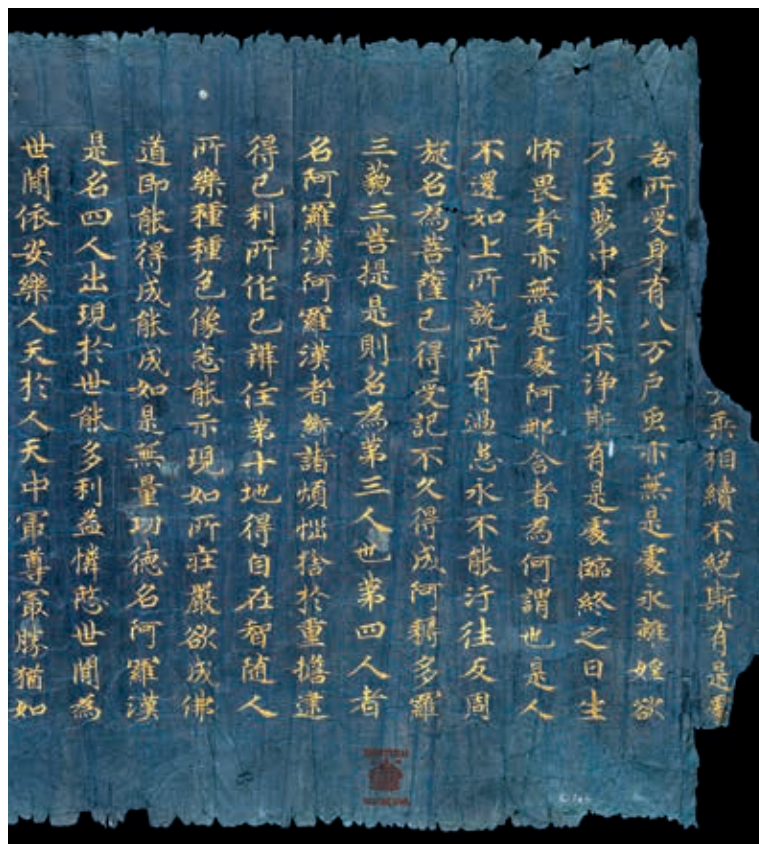 乘相續不絕斯有是處
若所受身有八万户虫亦無是處永離婬欲
乃至夢中不失不淨斯有是處臨終之日生
怖畏者亦無是處阿那含者為何謂也是人
不還如上所說所有過患永不能汙往反周
旋名為菩薩已得受記不久得成阿耨多羅
三藐三菩提是則名為第三人也第四人者
名阿羅漢阿羅漢者斷諸煩惱捨於重擔逮
得己利所作已辦住第十地得自在智隨人
所樂種種色像悉能示現如所莊嚴欲成佛
道即能得成能成如是無量功德名阿羅漢
是名四人出現於世能多利益憐愍世間為
世間依安樂人天於人天中冣尊冣勝猶如